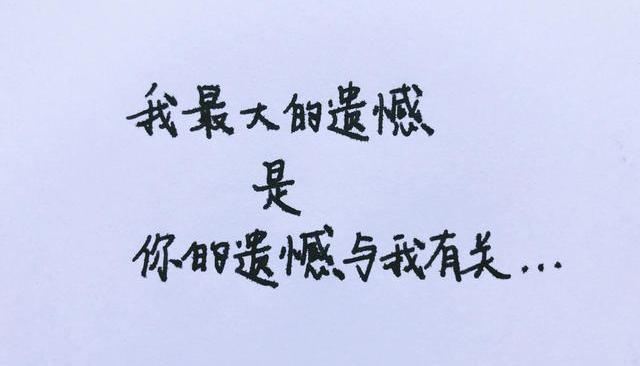 我最大的遗憾
是
你的遗憾与我有关...